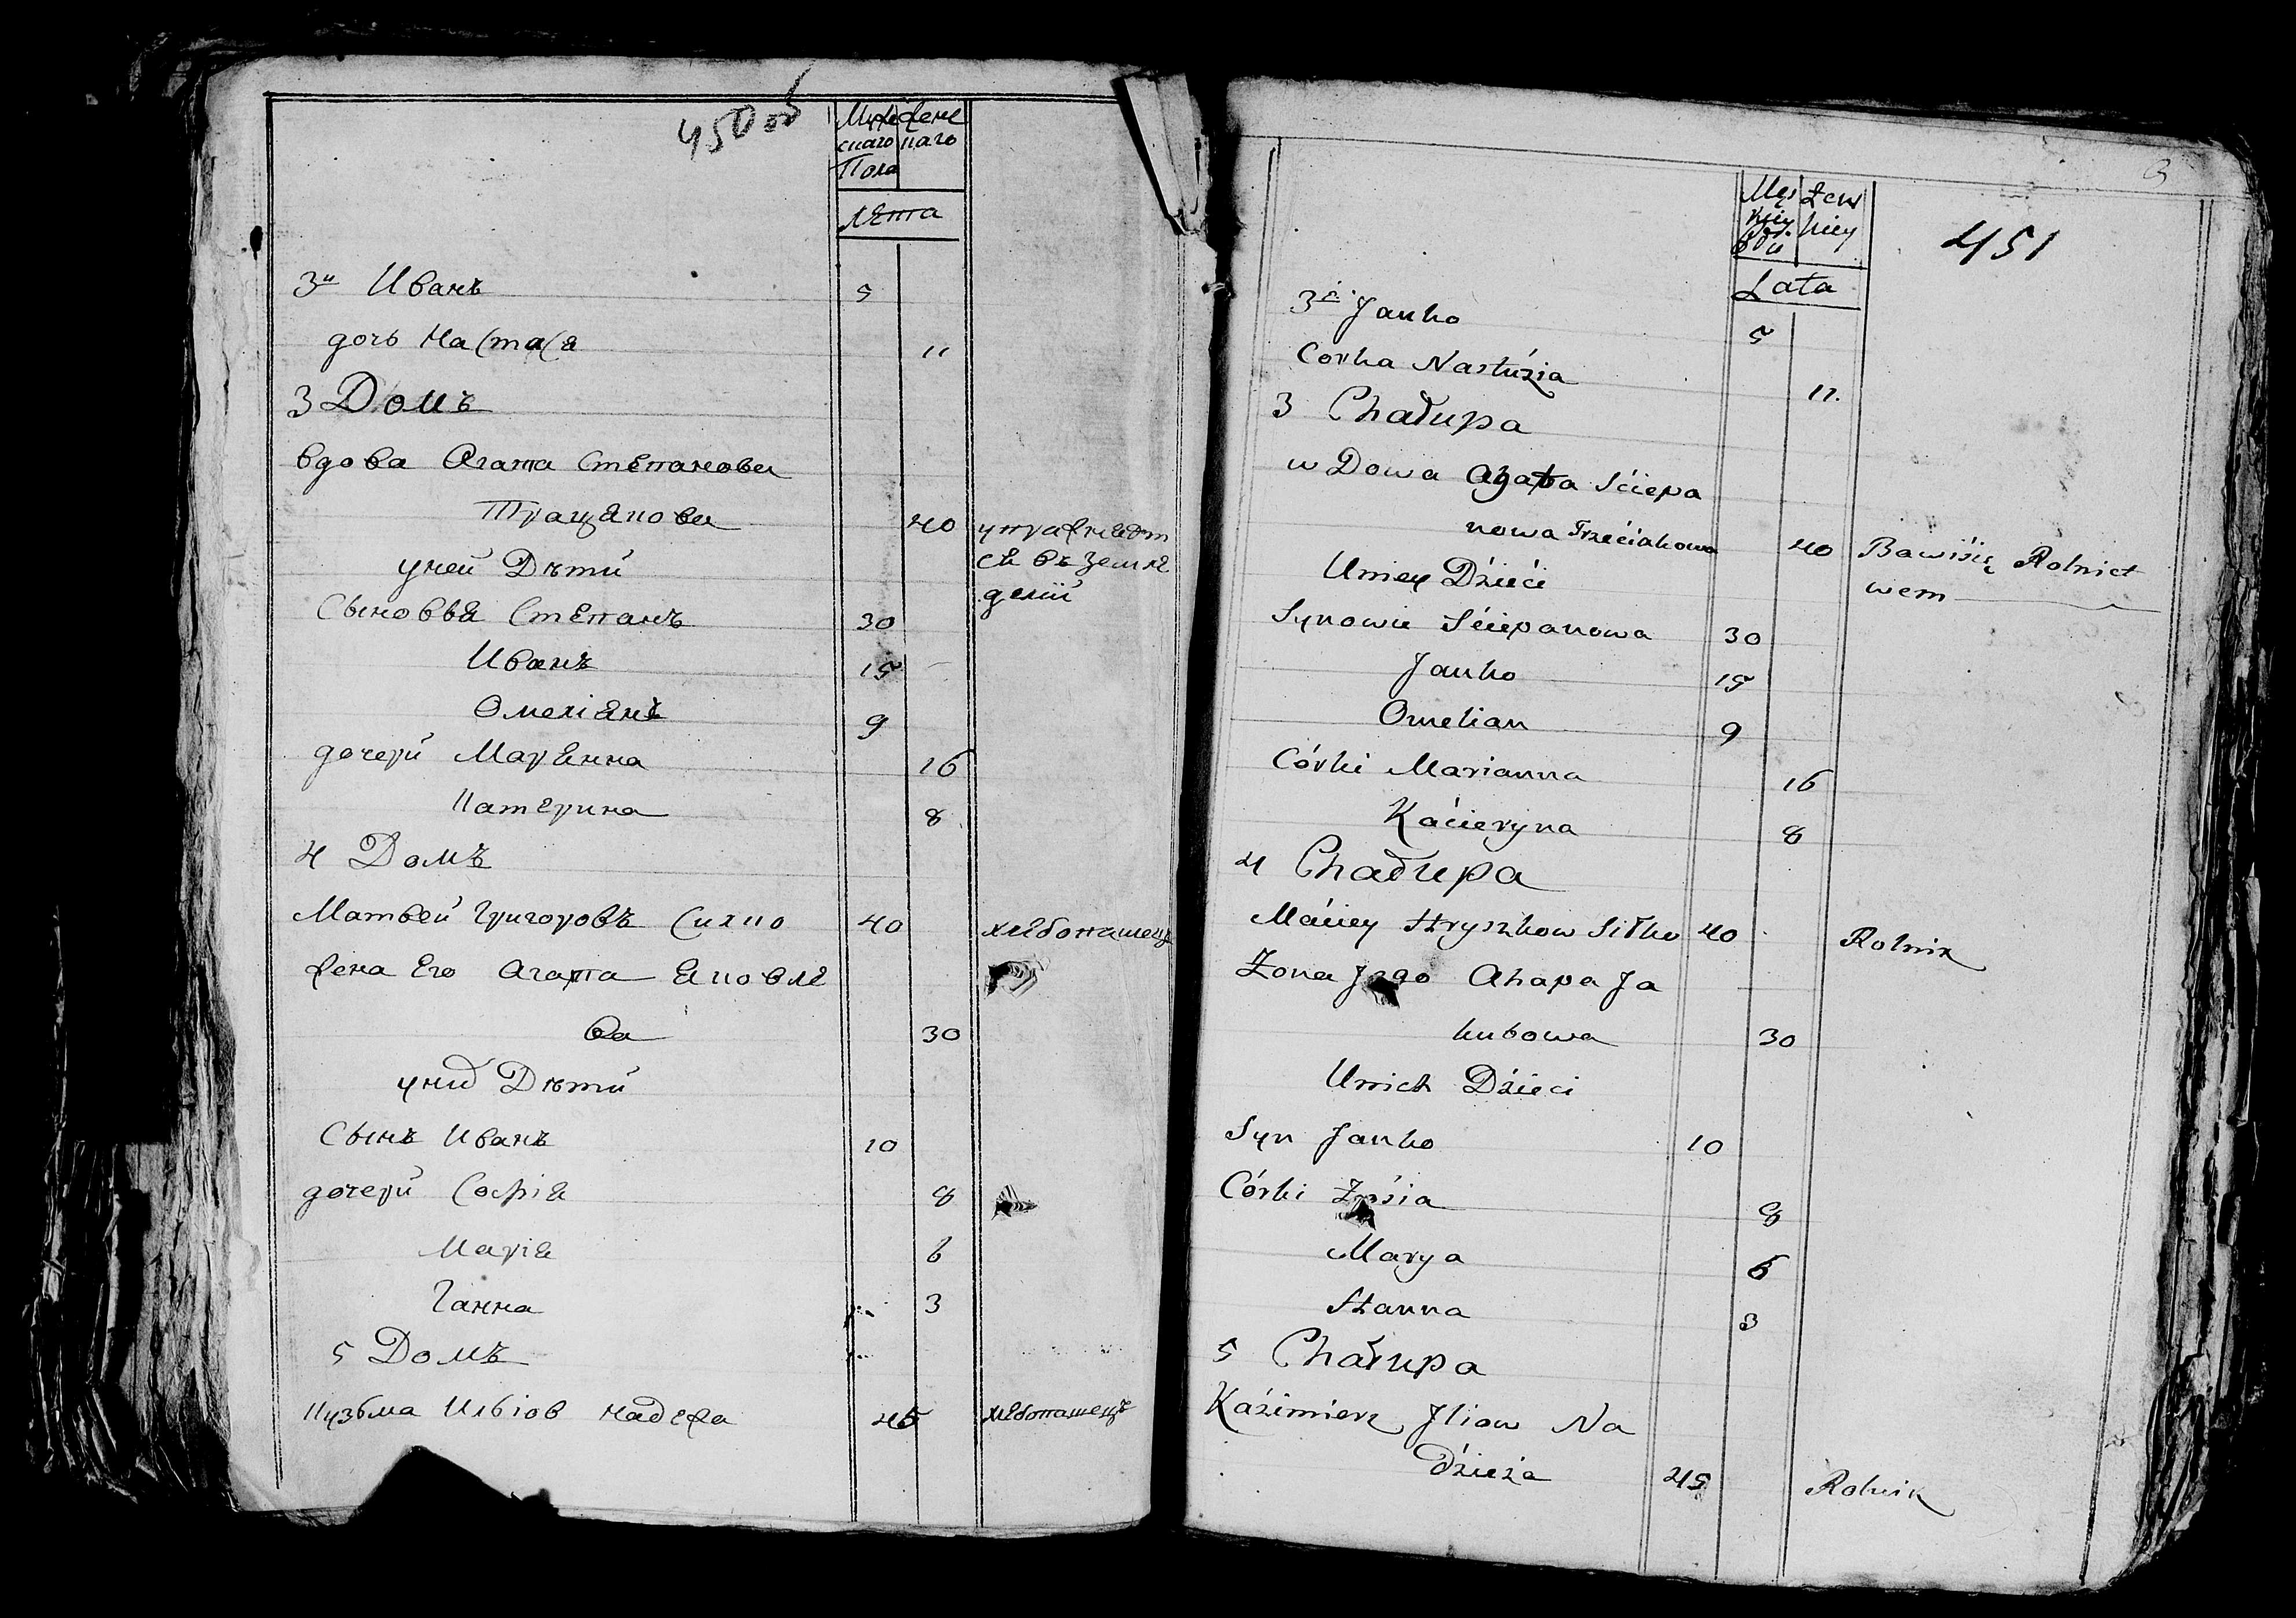 450 об
Муже жене
скаго наго
Пола
лѣта
3й Иванъ 5
дочь Настася 11
3 Домъ
вдова Агапа Степанова
Трацякова 40 упражняет
уней Дѣти ся въ земле
делiй
Сыновья Степанъ 30
Иванъ 15
Омелiянъ 9
дочери Марянна 16
Катерина 8
4 Домъ
Матвей Григоровъ Силко 40 хлебопашецъ
жена Его Агапа Яковле
ва 30
уних Дѣти
Сынъ Иванъ 10
дочери Софiя 8
Марiя 6
Ганна 3
5 Домъ
Кузьма Ильiов Надежа 45 хлебопашецъ
3
451
Męs Żens
kiey kiey
Płci
Lata
3ci Janko 5
Corka Nastuzia 11.
3 Chałupa
wDowa Agapa Sciepa
nowa Trzeciakowa 40 Bawisię Rolnict
wem
Uniey Dzieci
Synowie Sciepanowa 30
Janko 15
Omelian 9
Córki Marianna 16
Kacieryna 8
4 Chałupa
Maciey Hryszkow Siłko 40 Rolnik
Żona Jego Ahapa Ja
kubowa 30
Unich Dzieci
Syn Janko 10
Córki Zosia 8
Marya 6
Hanna 3
5 Chałupa
Kazimierz Jliow Na
dzieża 45 Rolnik